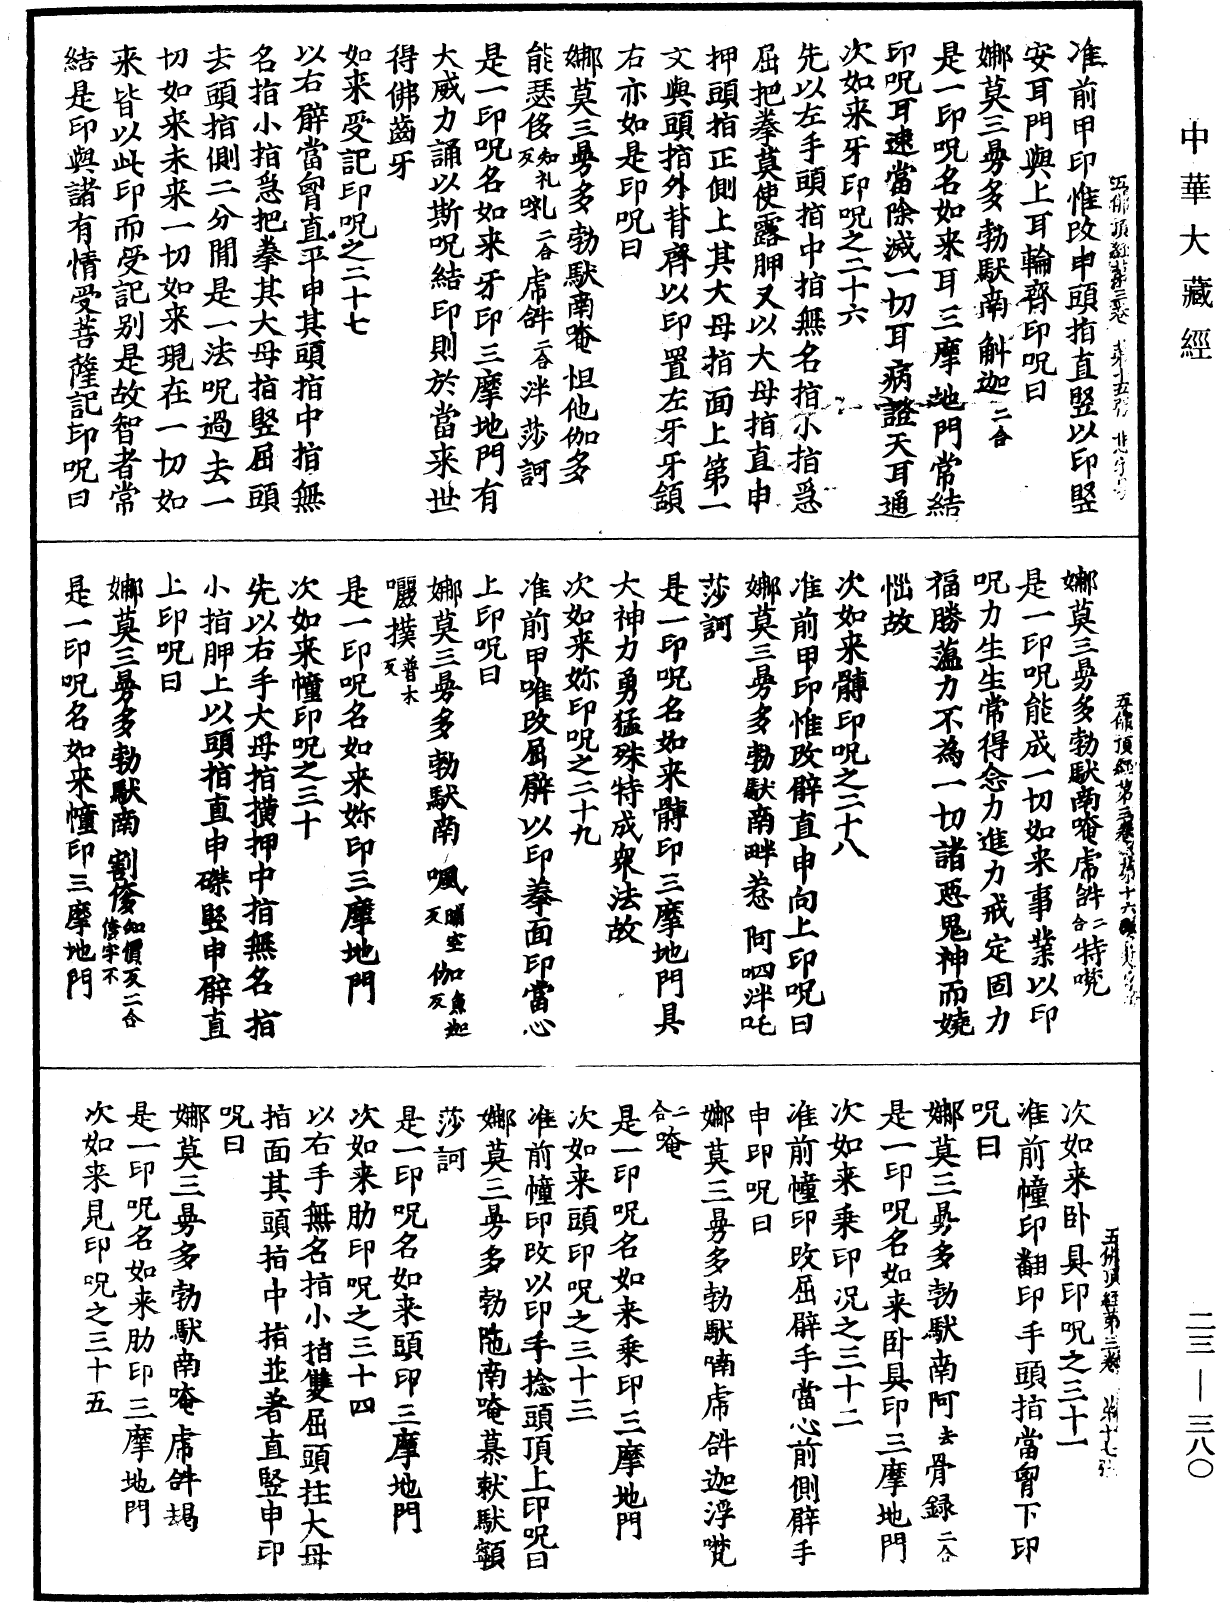 中華大藏經
准前甲印惟改申頭指直竪以印竪
安耳門與上耳輪齊印呪曰
娜莫三曼多勃馱南斛迦二合
是一印呪名如来耳三摩地門常結
印呪耳速當除滅一切耳病證天耳通
次如来牙印呪之二十六
先以左手頭指中指無名指小指急
屈把拳莫使露胛又以大母指直申
押頭指正側上其大母指面上第一
文與頭指外背齊以印置左牙牙頷
右亦如是印呪曰
娜莫三曼多勃馱南唵怛他伽多
能瑟侈知礼反㘑二合虎𤙖二合泮莎訶
是一印呪名如来牙印三摩地門有
大威力誦以斯呪結印則於當来世
得佛齒牙
如来受記印呪之二十七
以右臂當胷直平申其頭指中指無
名指小指急把拳其大母指竪屈頭
去頭指側二分間是一法呪過去一
切如来未来一切如来現在一切如
来皆以此印而受記别是故智者常
結是印與諸有情受菩薩記印呪曰
五佛頂經第三卷 第十六張
娜莫三曼多勃馱南唵虎𤙖二合特㘕
是一印呪能成一切如来事業以印
呪力生生常得念力進力戒定固力
福勝蕰力不為一切諸惡鬼神而嬈
惱故
次如来髆印呪之二十八
准前甲印惟改臂直申向上印呪曰
娜莫三曼多勃馱南畔惹阿呬泮吒
莎訶
是一印呪名如来髆印三摩地門具
大神力勇猛殊特成衆法故
次如来妳印呪之二十九
准前甲唯改屈臂以印拳面印當心
上印呪曰
娜莫三曼多勃馱南
㘓撲普木反
是一印呪名如来妳印三摩地門
次如来幢印呪之三十
先以右手大母指撗押中指無名指
小指胛上以頭指直申磔竪申臂直
上印呪曰
娜莫三曼多勃馱南割
是一印呪名如来幢印三摩地門
五佛頂經第三卷 第十七張
次如来卧具印呪之三十一
准前幢印翻印手頭指當胷下印
呪曰
娜莫三曼多勃馱南阿去骨録二合
是一印呪名如来卧具印三摩地門
次如来乘印况之三十二
准前幢印改屈臂手當心前側臂手
申印呪曰
娜莫三曼多勃馱喃虎𤙖迦浮㘕
二合唵
是一印呪名如来乘印三摩地門
次如来頭印呪之三十三
准前幢印改以印手捻頭頂上印呪曰
娜莫三曼多勃陁南唵慕𠿒馱額
莎訶
是一印呪名如来頭印三摩地門
次如来肋印呪之三十四
以右手無名指小指雙屈頭拄大母
指面其頭指中指並著直竪申印
呪曰
娜莫三曼多勃馱南唵虎𤙖朅
是一印呪名如来肋印三摩地門
次如来見印呪之三十五
二三—三八〇